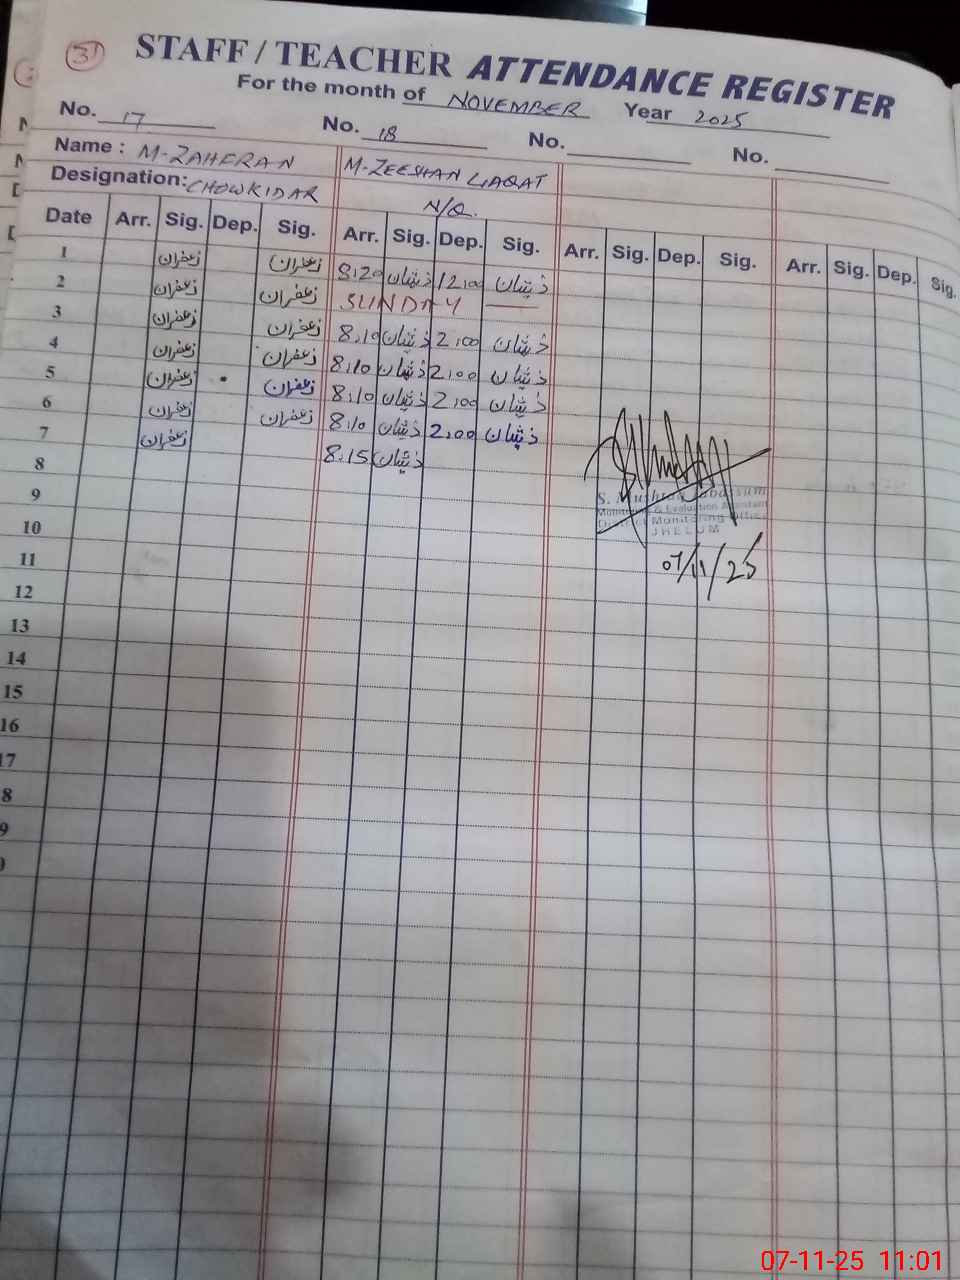 3
STAFF / TEACHER ATTENDANCE REGISTER
For the month of NOVEMBER Year 2025
No. 17 No. 18 No. No.
Name : M-ZAHFRAN M-ZEESHAN LIAQAT
Designation: CHOWKIDAR N/Q.
Date Arr. Sig. Dep. Sig. Arr. Sig. Dep. Sig. Arr. Sig. Dep. Sig. Arr. Sig. Dep. Sig.
1 زعفران زعفران 8:20 ذیشان 12:00 ذیشان
2 زعفران زعفران SUNDAY
3 زعفران زعفران 8:10 ذیشان 2:00 ذیشان
4 زعفران زعفران 8:10 ذیشان 2:00 ذیشان
5 زعفران زعفران 8:10 ذیشان 2:00 ذیشان
6 زعفران زعفران 8:10 ذیشان 2:00 ذیشان
7 زعفران 8:15 ذیشان
8
9
10
11
12
13
14
15
16
17
8
9
S. Mushtaq
Monitoring & Evaluation Assistant
District Monitoring Office
JHELUM
07/11/25
07-11-25 11:01